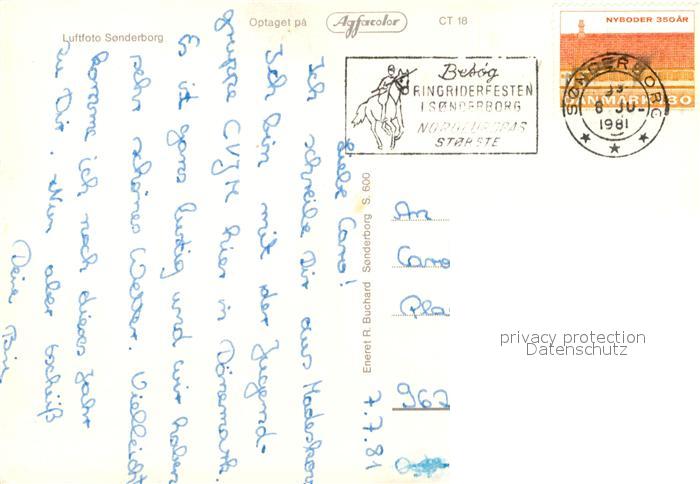 Luftfoto Sønderborg
Optaget på
Agfacolor
CT 18
NYBODER 350 ÅR
DANMARK
80
SØNDERBORG
1981
Besøg
RINGRIDERFESTEN
I SØNDERBORG
NORDEUROPAS
STØRSTE
7.7.81
Liebe Caro!
Ich schreibe Dir aus
Ich bin mit der Jugend-
gruppe CVJM hier in Dänemark.
Es ist ganz lustig und wir haben
sehr schönes Wetter. Vielleicht
komme ich noch dieses Jahr
zu Dir. Nun aber tschüß
Deine
Eneret R. Buchard Sønderborg S. 600
An
Caro
Pla
967
privacy protection
Datenschutz